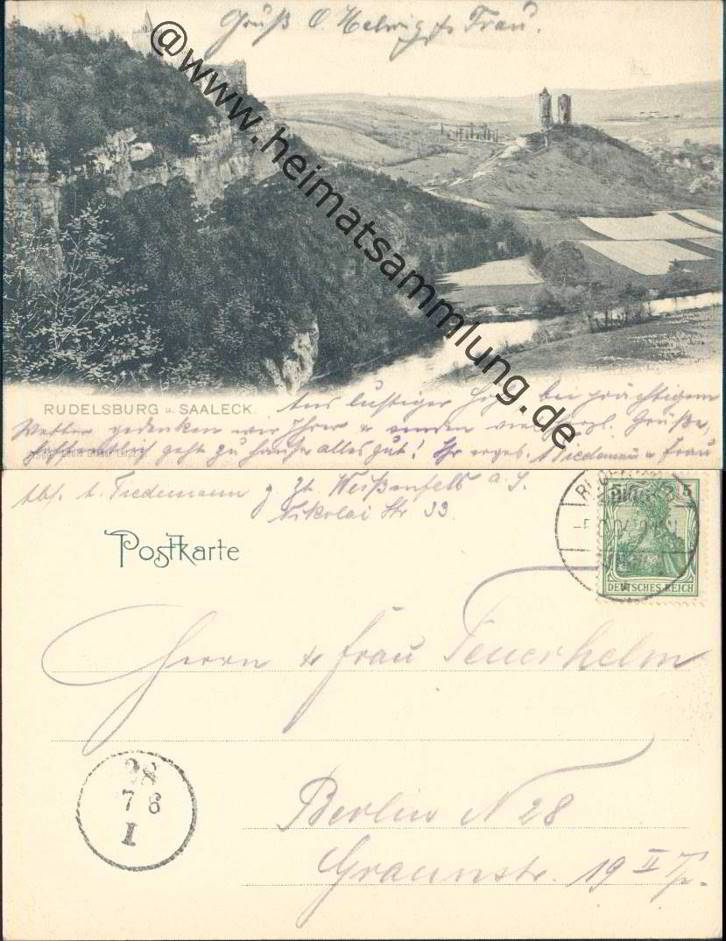 Gruß O. Helwig & Frau.
@www.heimatsammlung.de
RUDELSBURG u. SAALECK.
Aus lustiger bei prächtigem
Wetter gedenken wir Ihrer & senden viele herzl. Grüße,
hoffentlich geht zu Hause alles gut! Ihr ergeb. Tiedemann u Frau
Abs. Tiedemann z. Zt. Weißenfels a. S.
Nikolai Str 33.
Postkarte
5
DEUTSCHES REICH
Herrn & Frau Feuerhelm
28
7 6
I
Berlin N 28
Graunstr. 19 II Tr.